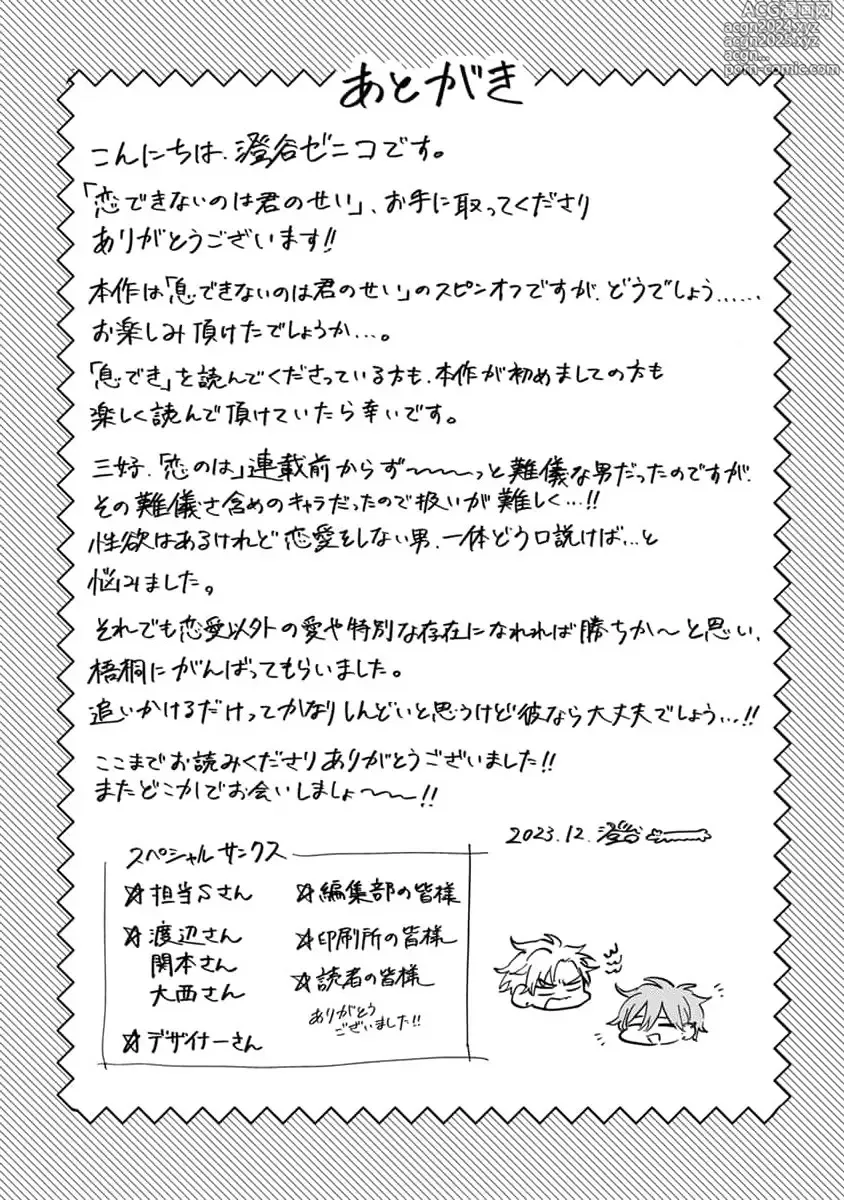 ACG漫画网
acgn2024.xyz
acgn2025.xyz
acgn...
porn-comic.com
あとがき
こんにちは、澄谷ゼニコです。
「恋できないのは君のせい」、お手に取ってくださり
ありがとうございます!!
本作は「息できないのは君のせい」のスピンオフですが、どうでしょう……
お楽しみ頂けたでしょうか…。
「息でき」を読んでくださっている方も、本作が初めましての方も
楽しく読んで頂けていたら幸いです。
三好、「恋のは」連載前からず〜〜〜っと難儀な男だったのですが、
その難儀さ含めのキャラだったので扱いが難しく…!!
性欲はあるけれど恋愛をしない男、一体どう口説けば…と
悩みました。
それでも恋愛以外の愛や特別な存在になれれば勝ちか〜と思い、
梧桐にがんばってもらいました。
追いかけるだけってかなりしんどいと思うけど彼なら大丈夫でしょう…!!
ここまでお読みくださりありがとうございました!!
またどこかでお会いしましょ〜〜〜!!
2023.12. 澄谷
スペシャルサンクス
☆担当Sさん
☆渡辺さん
関本さん
大西さん
☆デザイナーさん
☆編集部の皆様
☆印刷所の皆様
☆読者の皆様
ありがとう
ございました!!